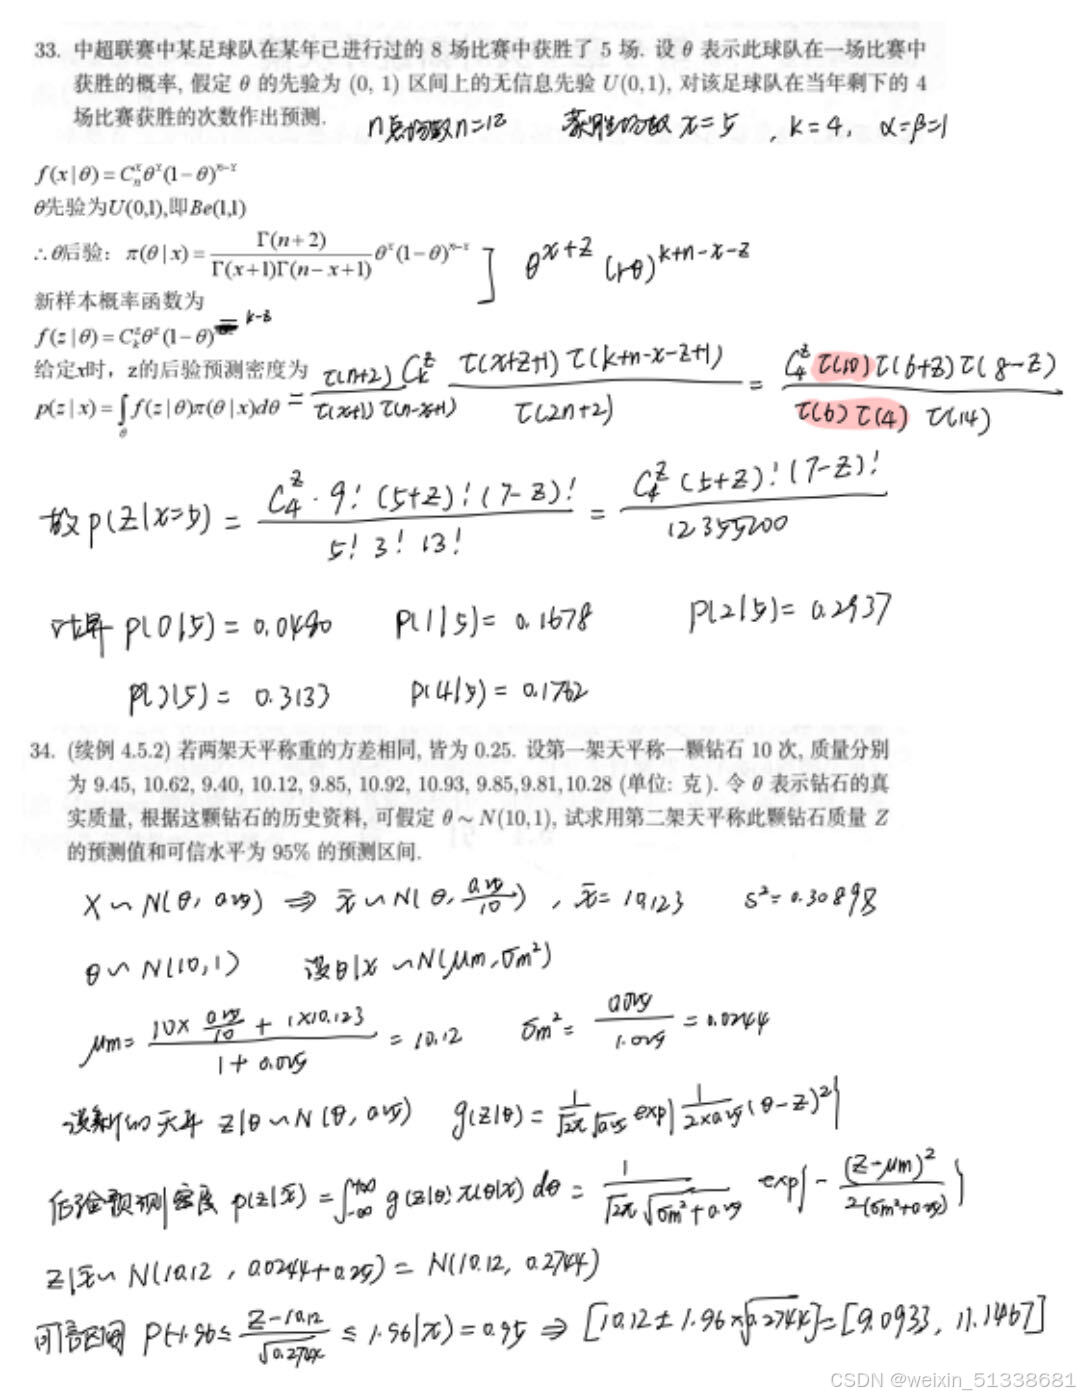 33. 中超联赛中某足球队在某年已进行过的 8 场比赛中获胜了 5 场. 设 θ 表示此球队在一场比赛中
获胜的概率, 假定 θ 的先验为 (0, 1) 区间上的无信息先验 U(0,1), 对该足球队在当年剩下的 4
场比赛获胜的次数作出预测.
n总场数n=12 获胜场数 x=5 , k=4, α=β=1
f(x|θ)=C_n^x θ^x(1-θ)^{n-x}
θ先验为U(0,1),即Be(1,1)
∴θ后验: π(θ|x)=\frac{Γ(n+2)}{Γ(x+1)Γ(n-x+1)}θ^x(1-θ)^{n-x} ] θ^{x+z} (1-θ)^{k+n-x-z}
新样本概率函数为
f(z|θ)=C_k^z θ^z(1-θ)^{k-z}
给定x时，z的后验预测密度为
p(z|x)=∫_θ f(z|θ)π(θ|x)dθ = \frac{τ(n+2) C_k^z}{τ(x+1) τ(n-x+1)} \frac{τ(x+z+1) τ(k+n-x-z+1)}{τ(2n+2)} = \frac{C_4^z τ(10) τ(6+z) τ(8-z)}{τ(6) τ(4) τ(14)}
故 p(z|x=5) = \frac{C_4^z · 9! (5+z)! (7-z)!}{5! 3! 13!} = \frac{C_4^z (5+z)! (7-z)!}{12355200}
计算 p(0|5) = 0.0480 p(1|5) = 0.1678 p(2|5) = 0.2937
p(3|5) = 0.3133 p(4|5) = 0.1762
34. (续例 4.5.2) 若两架天平称重的方差相同, 皆为 0.25. 设第一架天平称一颗钻石 10 次, 质量分别
为 9.45, 10.62, 9.40, 10.12, 9.85, 10.92, 10.93, 9.85,9.81,10.28 (单位: 克). 令 θ 表示钻石的真
实质量, 根据这颗钻石的历史资料, 可假定 θ ~ N(10,1), 试求用第二架天平称此颗钻石质量 Z
的预测值和可信水平为 95% 的预测区间.
X ~ N(θ, 0.25) ⇒ x̄ ~ N(θ, \frac{0.25}{10}) , x̄ = 10.123 s²=0.30898
θ ~ N(10,1) 设θ|x ~ N(μm, σm²)
μm = \frac{10× \frac{0.25}{10} + 1×10.123}{1+0.025} = 10.12 σm² = \frac{0.025}{1.025} = 0.0244
设新的天平 z|θ ~ N(θ, 0.25) g(z|θ) = \frac{1}{\sqrt{2π}\sqrt{0.25}} exp{ \frac{1}{2×0.25}(θ-z)² }
后验预测密度 p(z|x̄) = ∫_{-∞}^{+∞} g(z|θ) π(θ|x) dθ = \frac{1}{\sqrt{2π}\sqrt{σm²+0.25}} exp{ - \frac{(z-μm)²}{2(σm²+0.25)} }
z|x̄ ~ N(10.12, 0.0244+0.25) = N(10.12, 0.2744)
可信区间 P(-1.96 ≤ \frac{z-10.12}{\sqrt{0.2744}} ≤ 1.96|x) = 0.95 ⇒ [10.12 ± 1.96×\sqrt{0.2744}] = [9.0933, 11.1467]
CSDN @weixin_51338681